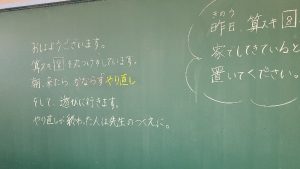 おはようございます。
算スキ 8 を丸つけをしています。
朝、来たら、かならずやり直し
そして、遊びに行きます。
やり直しが終わった人は先生のつくえに。
きのう
昨日、算スキ 8
家でしてきていると
置いてください。